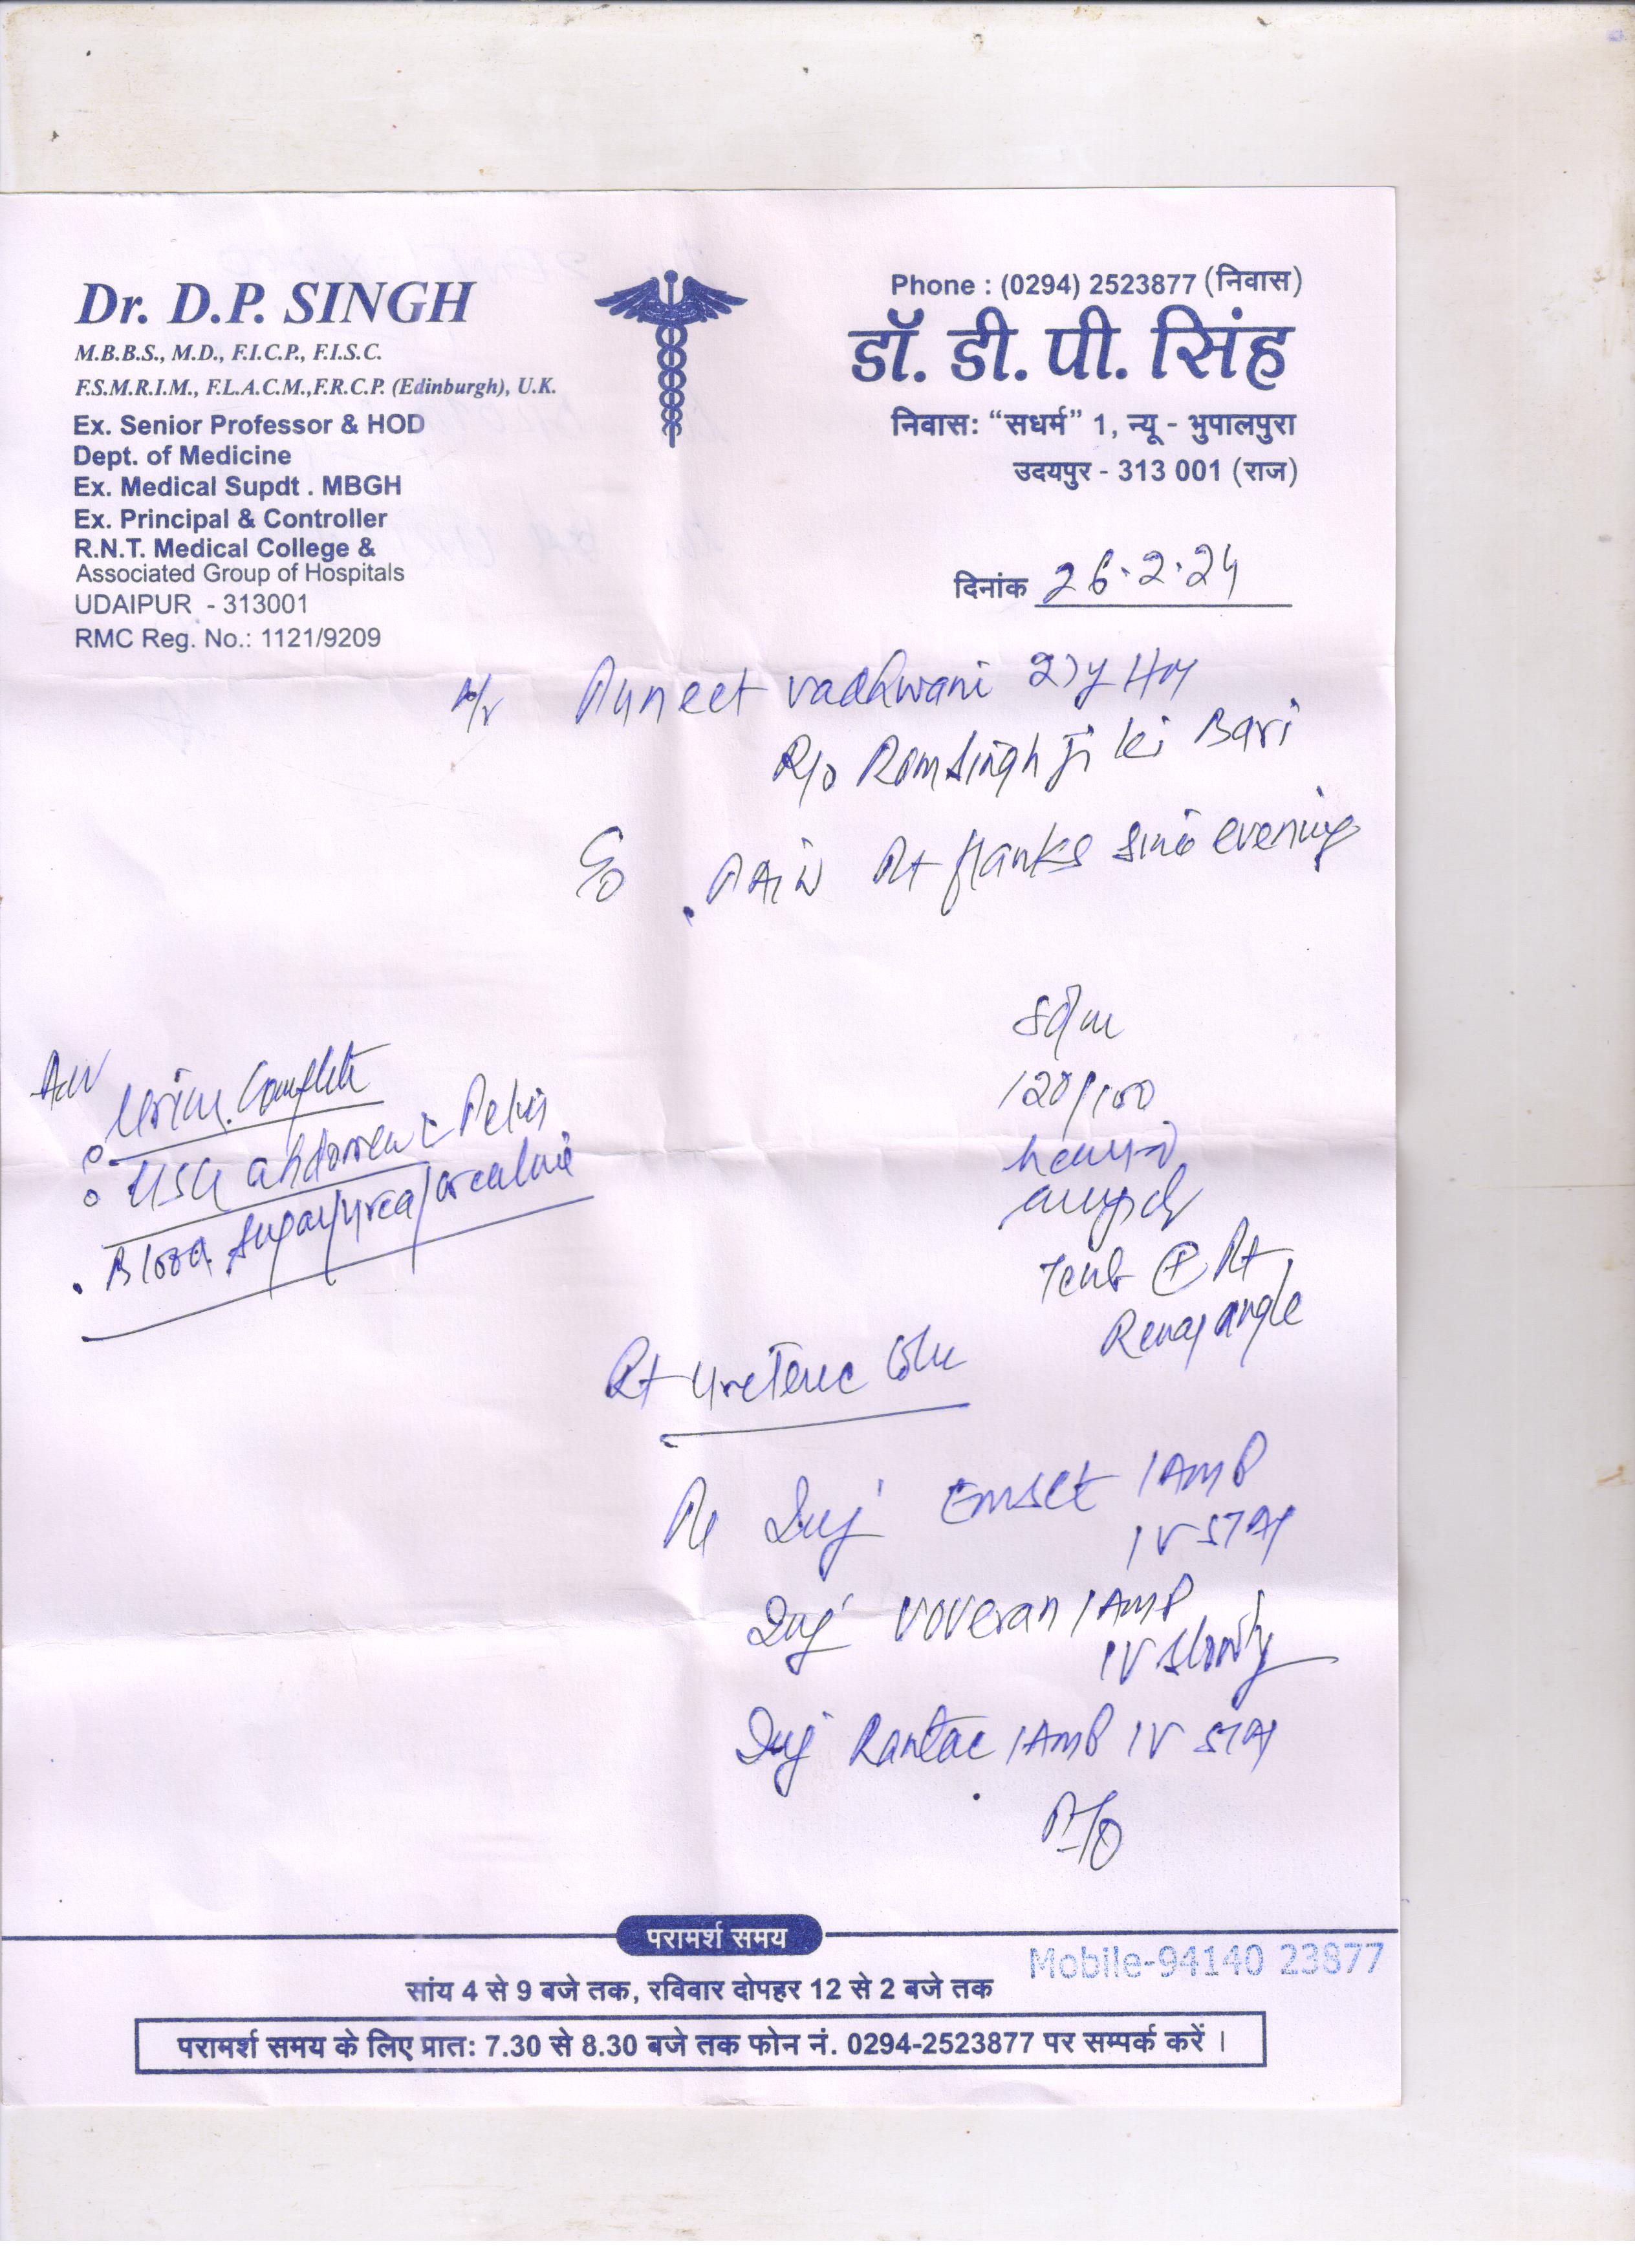 Dr. D.P. SINGH
M.B.B.S., M.D., F.I.C.P., F.I.S.C.
F.S.M.R.I.M., F.L.A.C.M.,F.R.C.P. (Edinburgh), U.K.
Ex. Senior Professor & HOD
Dept. of Medicine
Ex. Medical Supdt . MBGH
Ex. Principal & Controller
R.N.T. Medical College &
Associated Group of Hospitals
UDAIPUR - 313001
RMC Reg. No.: 1121/9209
Phone : (0294) 2523877 (निवास)
डॉ. डी. पी. सिंह
निवास: “सधर्म” 1, न्यू - भुपालपुरा
उदयपुर - 313 001 (राज)
दिनांक 26.2.24
Puneet Vadhwani
R/o Ramsinghji ki Bari
C/o . PAIN Rt flanks since evening
120/100
Tend ⊕ Rt
Renal angle
Adv
Urine Complete
USG abdomen c Pelvis
. Blood sugar/urea/creatinine
Rt Ureteric Colic
Inj Emset 1 AMP
IV STAT
Inj Voveran 1 AMP
IV slowly
Inj Rantac 1 AMP IV STAT
परामर्श समय
Mobile-94140 23877
सांय 4 से 9 बजे तक, रविवार दोपहर 12 से 2 बजे तक
परामर्श समय के लिए प्रात: 7.30 से 8.30 बजे तक फोन नं. 0294-2523877 पर सम्पर्क करें ।